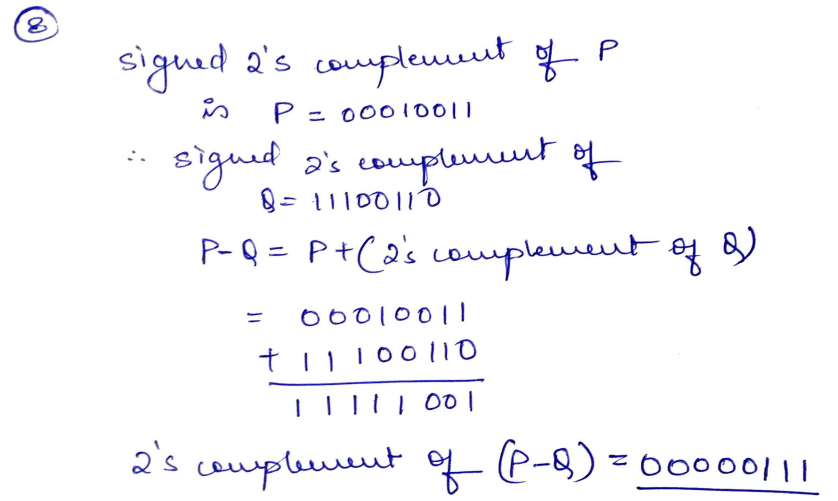 8
signed 2's complement of P
is P = 00010011
∴ signed 2's complement of
Q = 11100110
P-Q = P+(2's complement of Q)
= 00010011
+ 11100110
11111001
2's complement of (P-Q) = 00000111